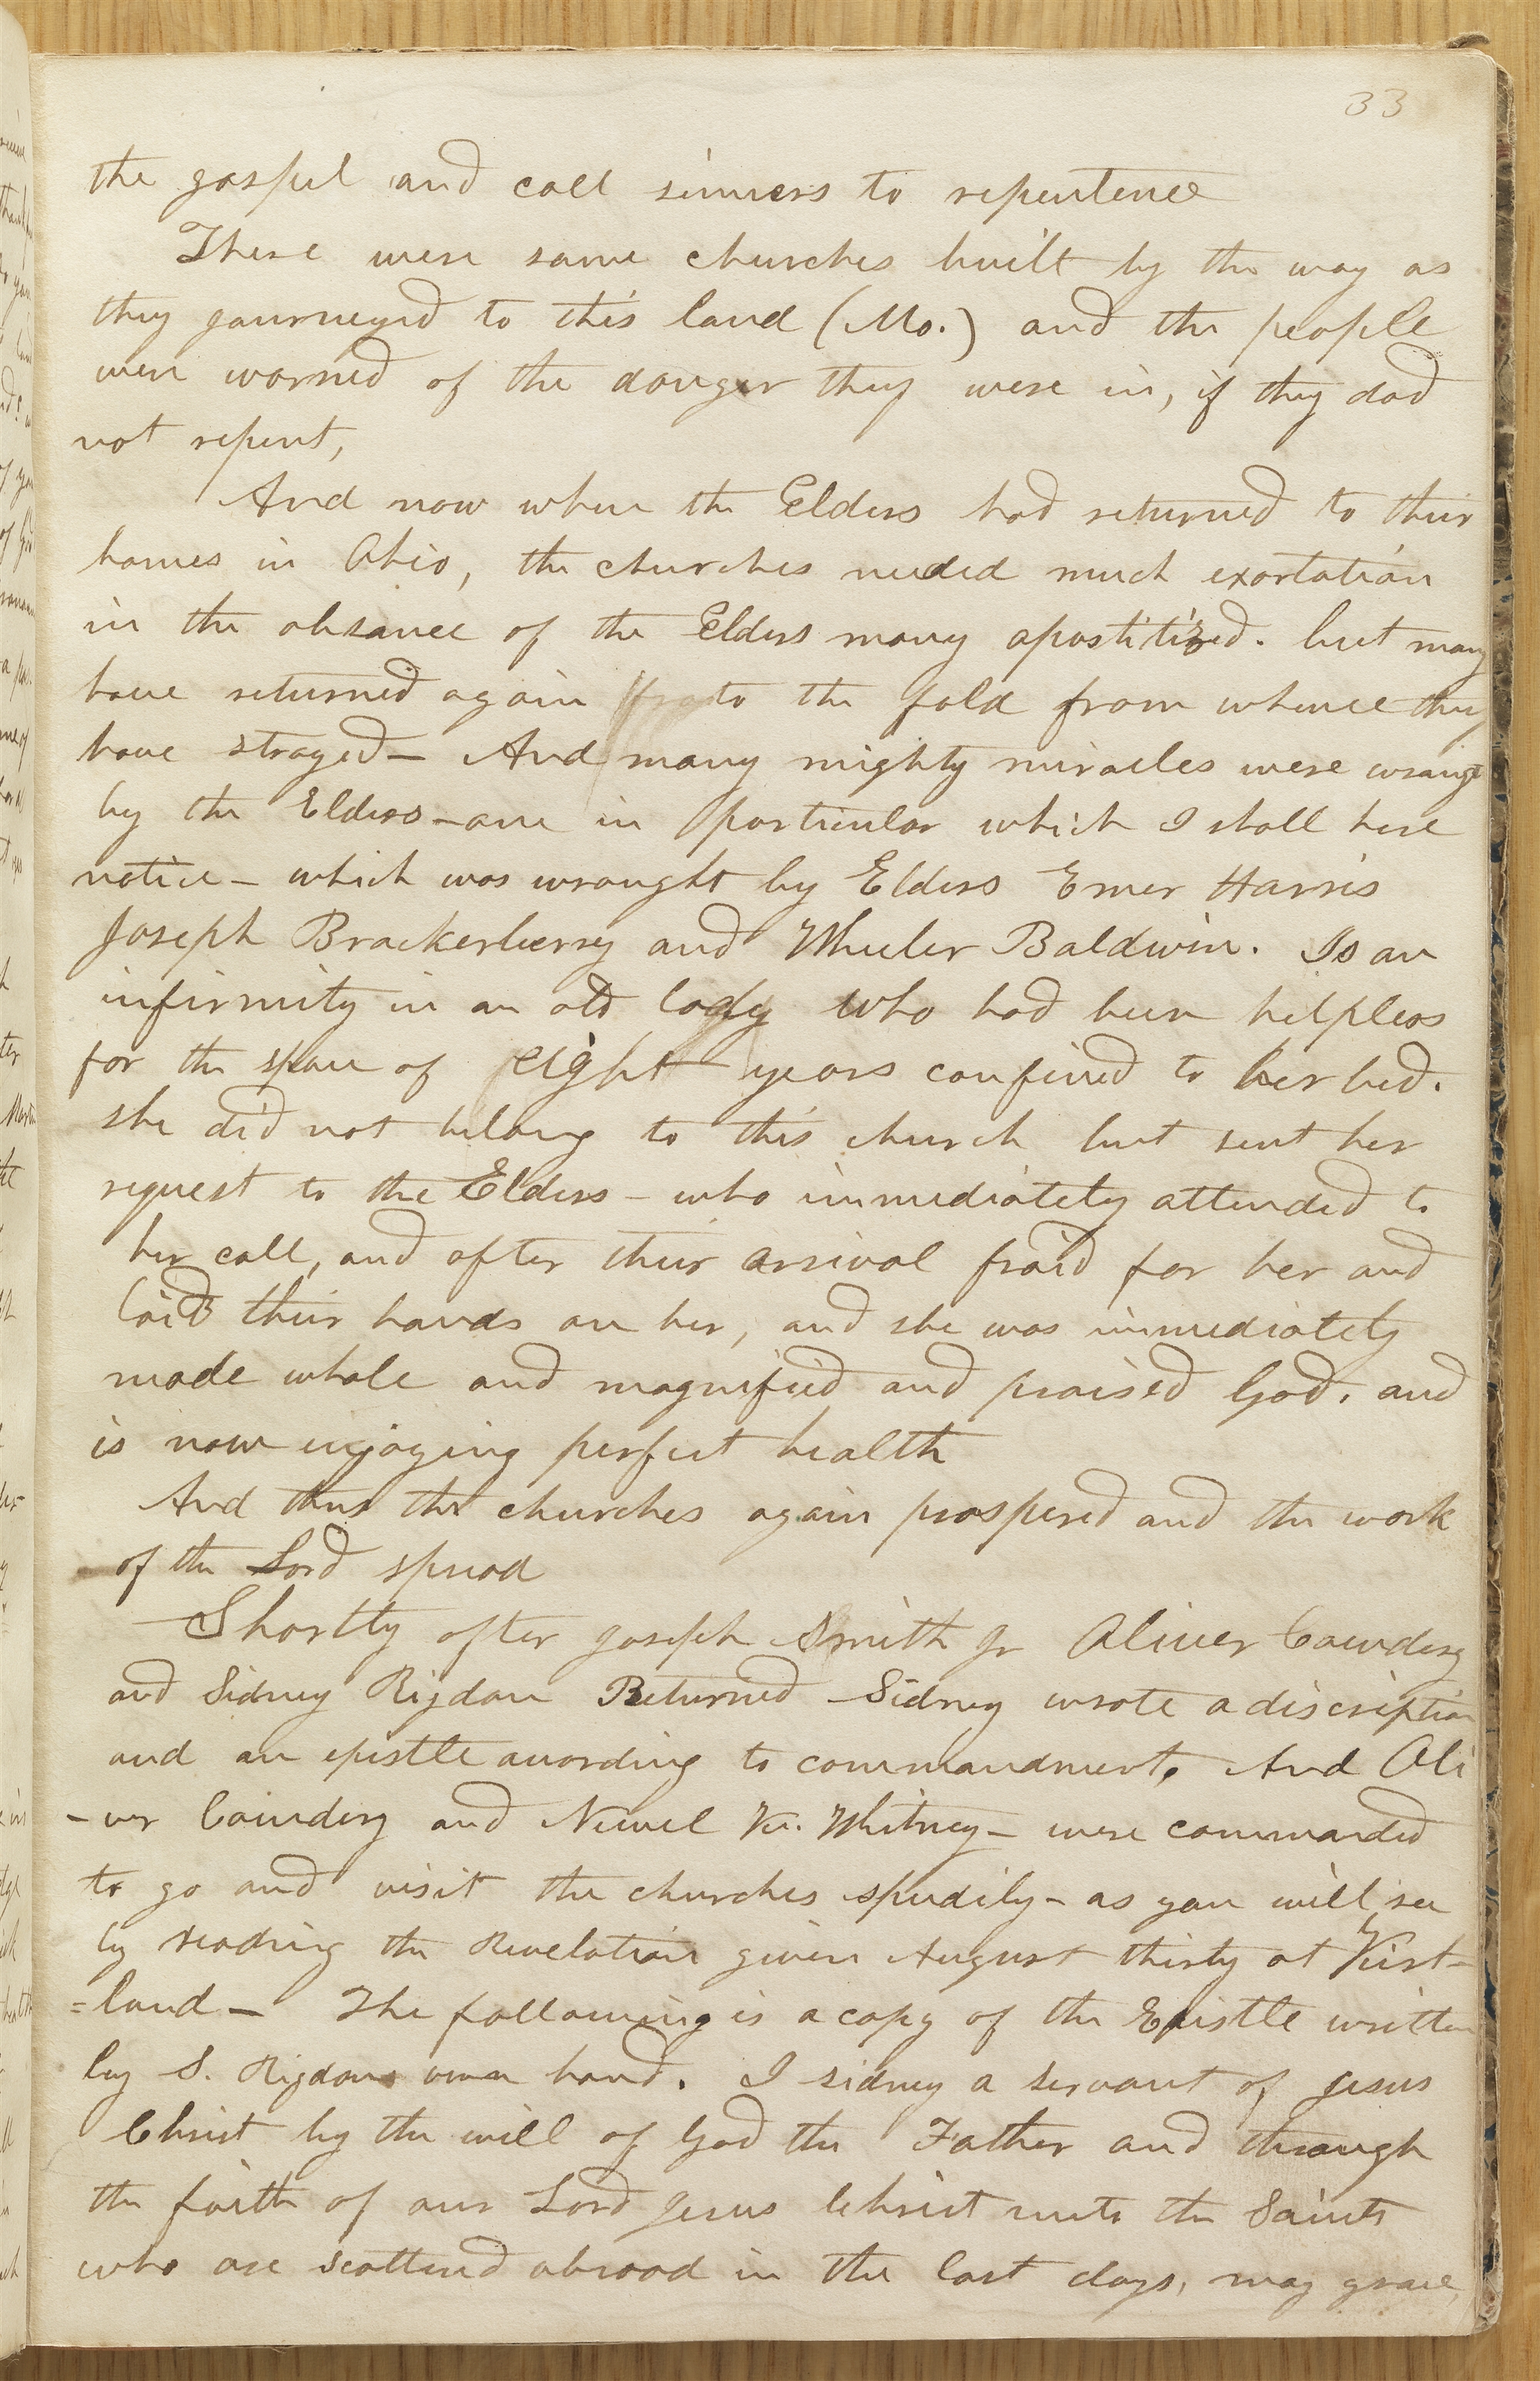 33
the gospel and call sinners to repentence
There were some churches built by the way as
they journeyed to this land (Mo.) and the people
were warned of the danger they were in, if they dad
not repent,
And now when the Elders had returned to their
homes in Ohio, the churches needed much exortation
in the absance of the Elders many apostitized. but many
have returned again to the fold from whence they
have strayed— And many mighty miracles were wraught
by the Elders—one in particular which I shall here
notice— which was wraught by Elders Emer Harris
Joseph Brackerberry and Wheeler Baldwin. Is an
infirmity in an old lady who had been helpless
for the space of eight years confined to her bed.
she did not belong to this church but sent her
request to the Elders— who immediately attended to
her call, and after their arrival praid for her and
laid their hands on her, and she was immediately
made whole and magnified and praised God. and
is now enjoying perfect health
And thus the churches again prospered and the work
of the Lord spread
Shortly after Joseph Smith Jr Oliver Cowdery
and Sidney Rigdon Returned —Sidney wrote a discription
and an epistle according to commandment. And Oli
-ver Cowdery and Newel K. Whitney— were commanded
to go and visit the churches speedily— as you will see
by reading the Revelation given August thirty at Kirt-
=land— The following is a copy of the Epistle written
by S. Rigdons own hand. I sidney a servant of Jesus
Christ by the will of God the Father and through
the faith of our Lord Jesus Christ unto the Saints
who are scattered abroad in the last days, may grace,